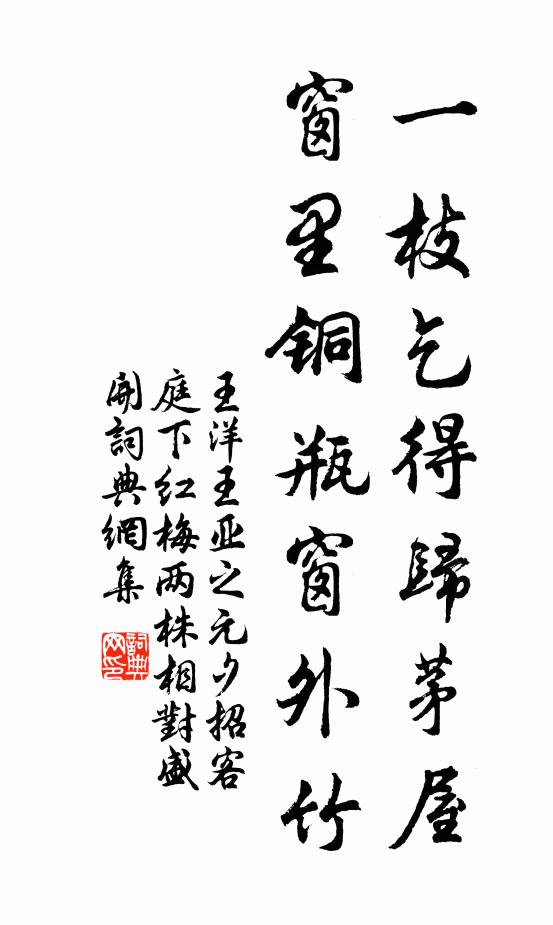 一枝乞得歸茅屋
窗里銅瓶窗外竹
王洋王亚之元夕招客
庭下红梅两株相對盛
開詞典網集
詞典网印